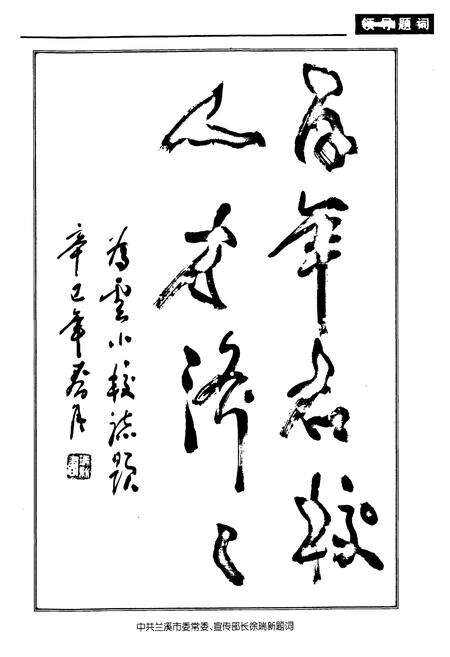 领导题词
百年名校
人才济々
為雲小校誌題
辛巳年春月
中共兰溪市委常委、宣传部长徐瑞新题词